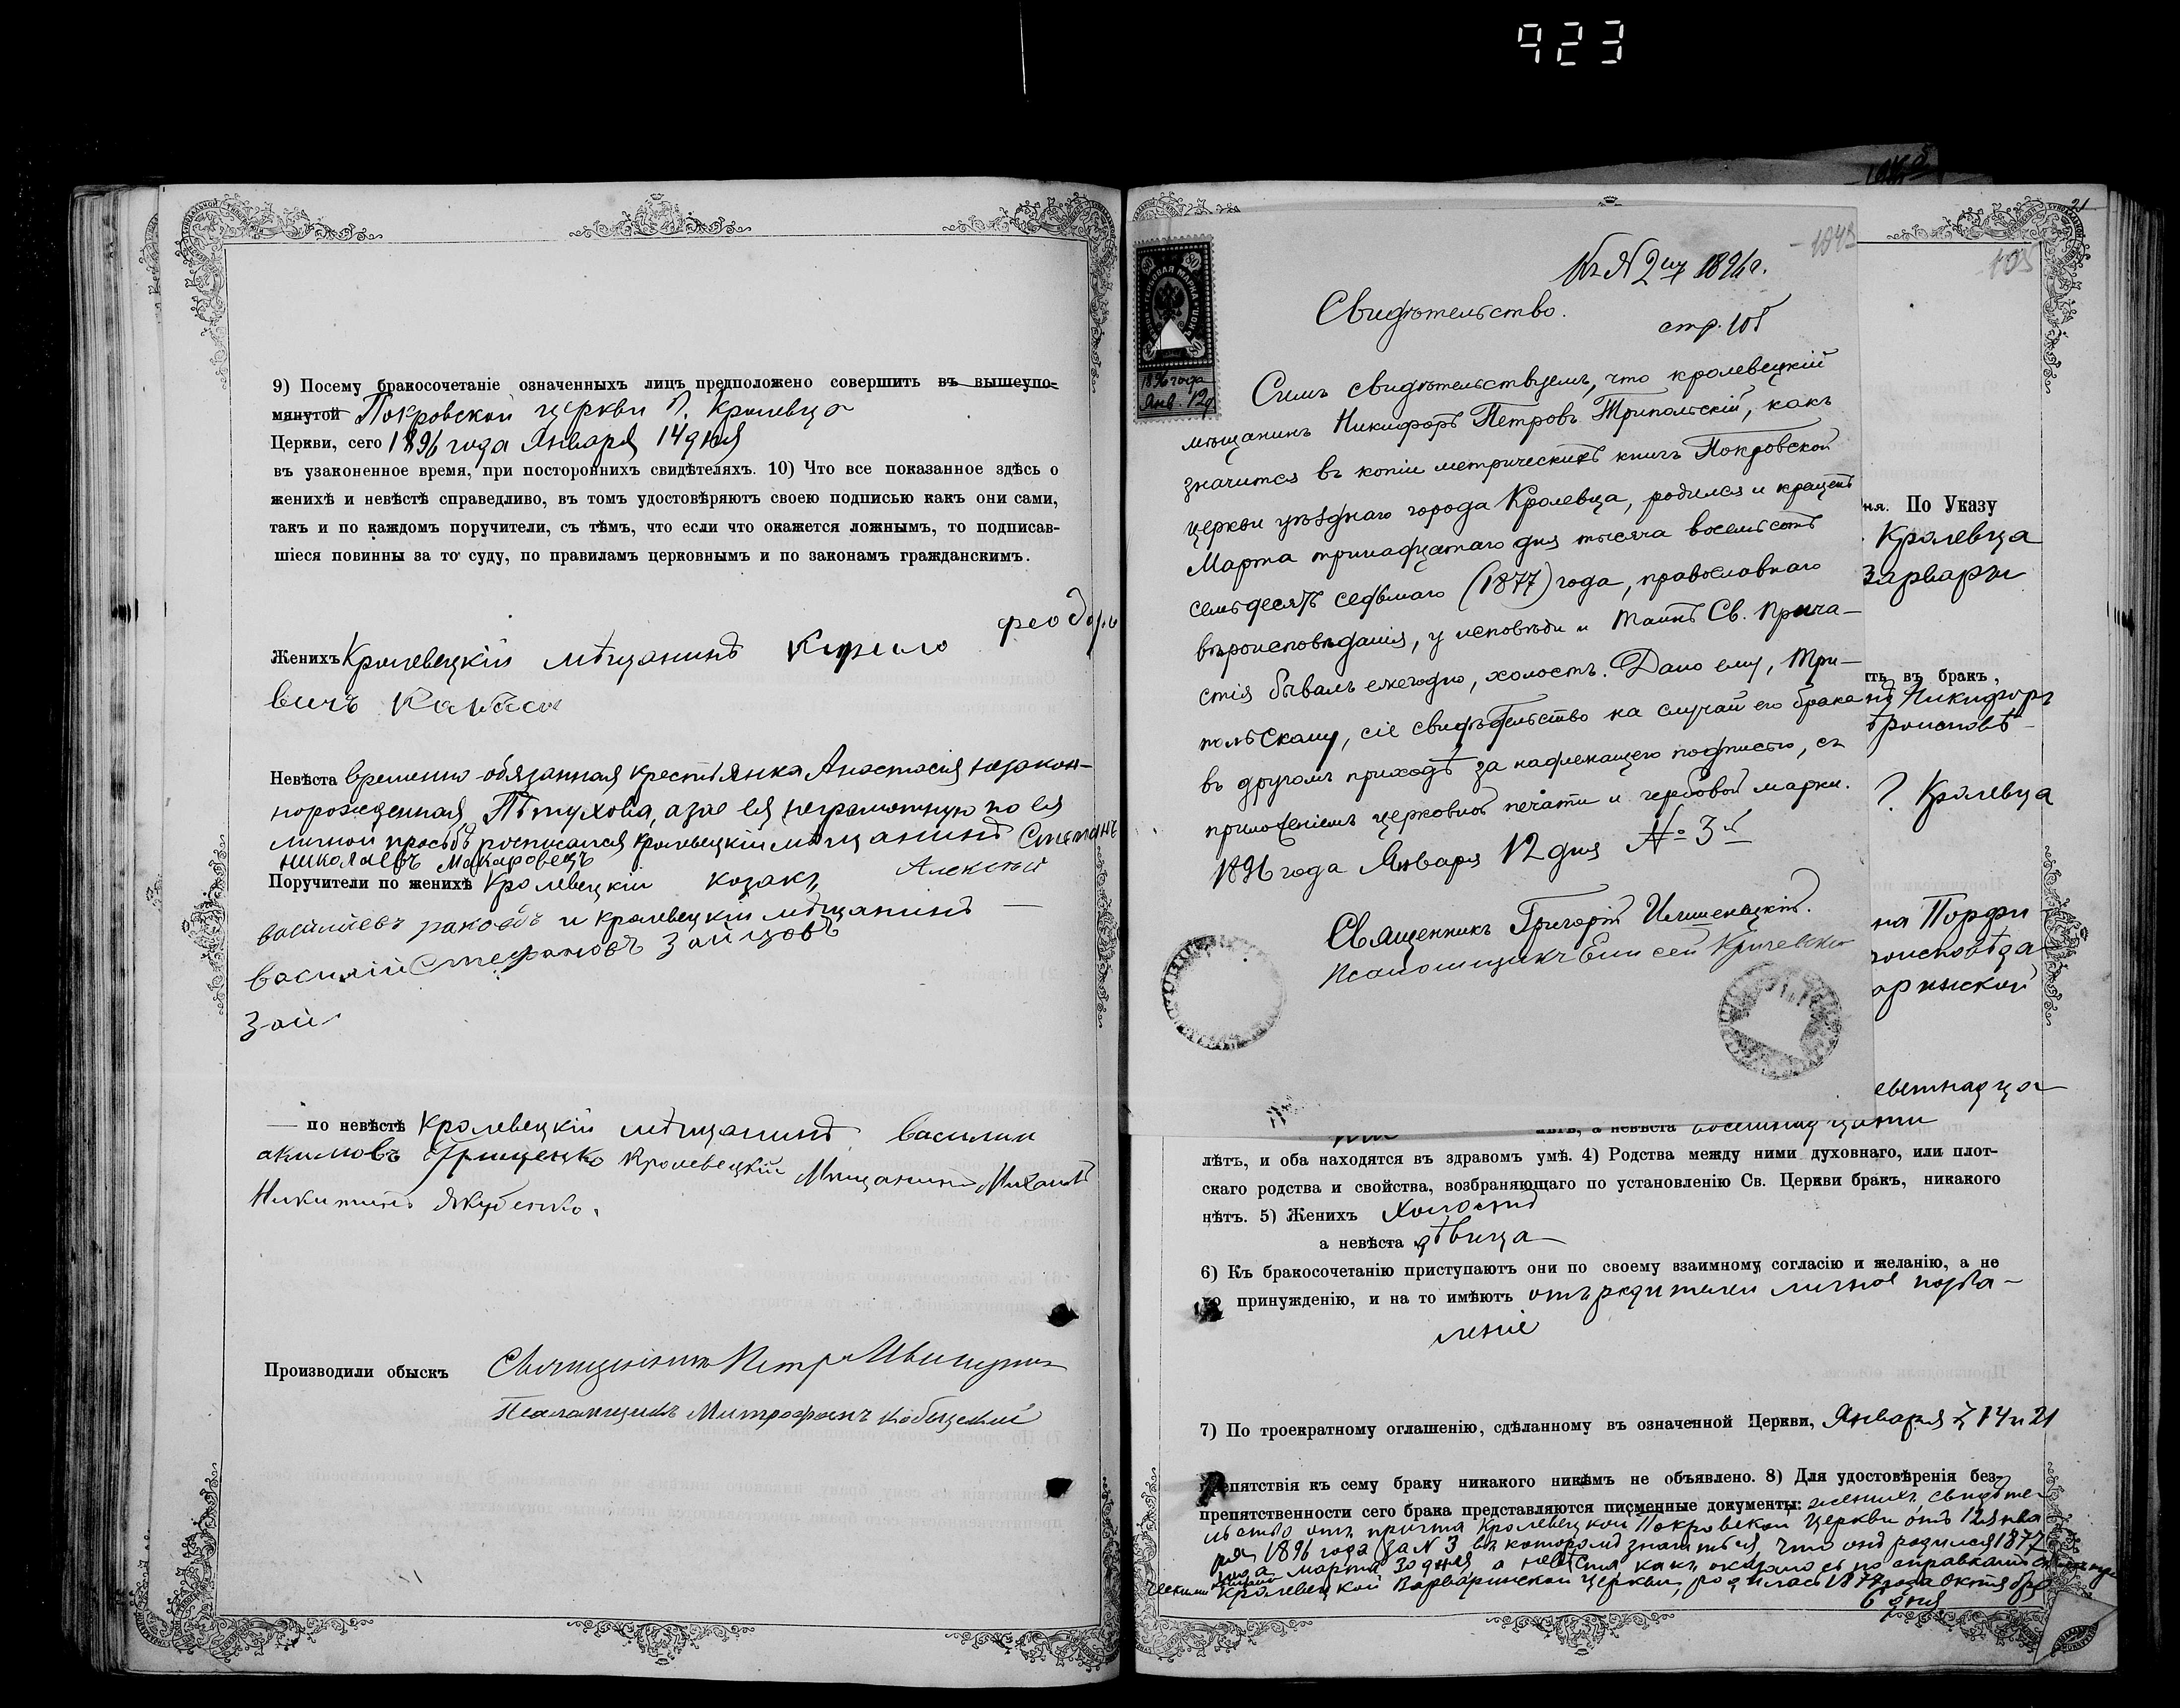 923
9) Посему бракосочетаніе означенныхъ лицъ предположено совершить въ вышеупо-
мянутой Покровской церкви г. Кролевца
Церкви, сего 1896 года Января 14 дня
въ узаконенное время, при постороннихъ свидѣтеляхъ. 10) Что все показанное здѣсь о
женихѣ и невѣстѣ справедливо, въ томъ удостовѣряютъ своею подписью какъ они сами,
такъ и по каждомъ поручители, съ тѣмъ, что если что окажется ложнымъ, то подписав-
шіеся повинны за то суду, по правиламъ церковнымъ и по законамъ гражданскимъ.
Женихъ Кролевецкій мѣщанинъ Кирило феодоро
вичъ
Невѣста временно-обязанная крестьянка Анастасія незакон-
норожденная Пѣтухова, а за ея неграмотную по ея
личной просьбѣ росписался кролевецкій мѣщанинъ Стетанъ
николаевъ Макаровецъ
Поручители по женихѣ Кролевецкій козакъ Алексѣй
васильевъ и кролевецкій мѣщанинъ —
василій Стефановъ Зайцовъ
Зай
— по невѣстѣ Кролевецкій мѣщанинъ василии
акимовъ Грищенко Кролевецкій Мѣщанинъ Михаилъ
Никитинъ Якубенко.
Производили обыскъ Священникъ Петръ
Псаломщикъ Митрофанъ Кобыцкий
21
1043
105
Къ № 2му 1896 г.
Свидѣтельство.
стр. 105
80
ГЕРБОВАЯ МАРКА
1896 года
Янв. 12 д
Симъ свидѣтельствуемъ, что кролевецкій
мѣщанинъ Никифоръ Петровъ Трипольскій, какъ
значится въ копіи метрическихъ книгъ Покровской
церкви уѣзднаго города Кролевца, родился и крещенъ
Марта тринадцатаго дня тысяча восемьсотъ
семьдесятъ седьмаго (1877) года, православнаго
вѣроисповѣданія, у исповѣди и Таинъ Св. Прича-
стія бывалъ ежегодно, холостъ. Дано ему, Три-
польскому, сіе свидѣтельство на случай его брака
въ другомъ приходѣ за надлежащею подписью, съ
приложеніемъ церковной печати и гербовой марки.
1896 года Января 12 дня № 3й
Священникъ Григорій
Псаломщикъ Елисей Кричевскій
ня. По Указу
Кролевца
Варвары
ть въ бракъ,
нъ Никифоръ
ѣроисповѣ-
г. Кролевца
на Порфи
роисповѣда
аринской
евятнадца
лѣтъ, а невѣста восемнадцати
лѣтъ, и оба находятся въ здравомъ умѣ. 4) Родства между ними духовнаго, или плот-
скаго родства и свойства, возбраняющаго по установленію Св. Церкви бракъ, никакого
нѣтъ. 5) Женихъ Холостъ
а невѣста дѣвица
6) Къ бракосочетанію приступаютъ они по своему взаимному согласію и желанію, а не
по принужденію, и на то имѣютъ отъ родителей личное позво-
леніе
7) По троекратному оглашенію, сдѣланному въ означенной Церкви, Января 7, 14 и 21
препятствія къ сему браку никакого никѣмъ не объявлено. 8) Для удостовѣренія без-
препятственности сего брака представляются писменные документы: женихъ, свидѣте-
льство отъ причта Кролевецкой Покровской Церкви отъ 12 янва
ря 1896 года за № 3 въ которомъ значится, что онъ родился 1877
года марта 30 дня, а невѣста какъ оказалось по справкамъ съ метри
ческими книгами Кролевецкой Варваринской церкви, родилась 1877 года Октября
6 дня